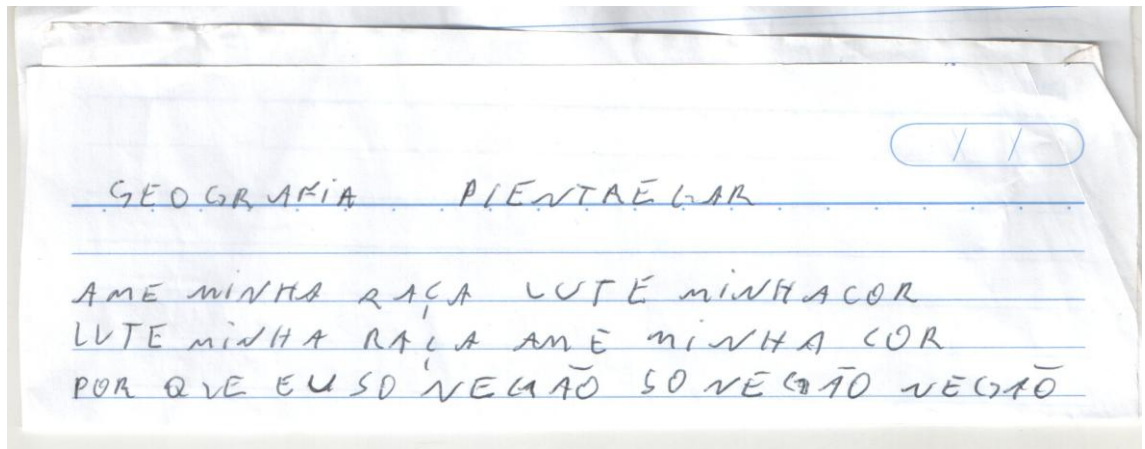 GEOGRAFIA P/ENTREGAR
AME MINHA RAÇA LUTE MINHACOR
LUTE MINHA RAÇA AME MINHA COR
POR QUE EU SO NEGÃO SO NEGÃO NEGÃO